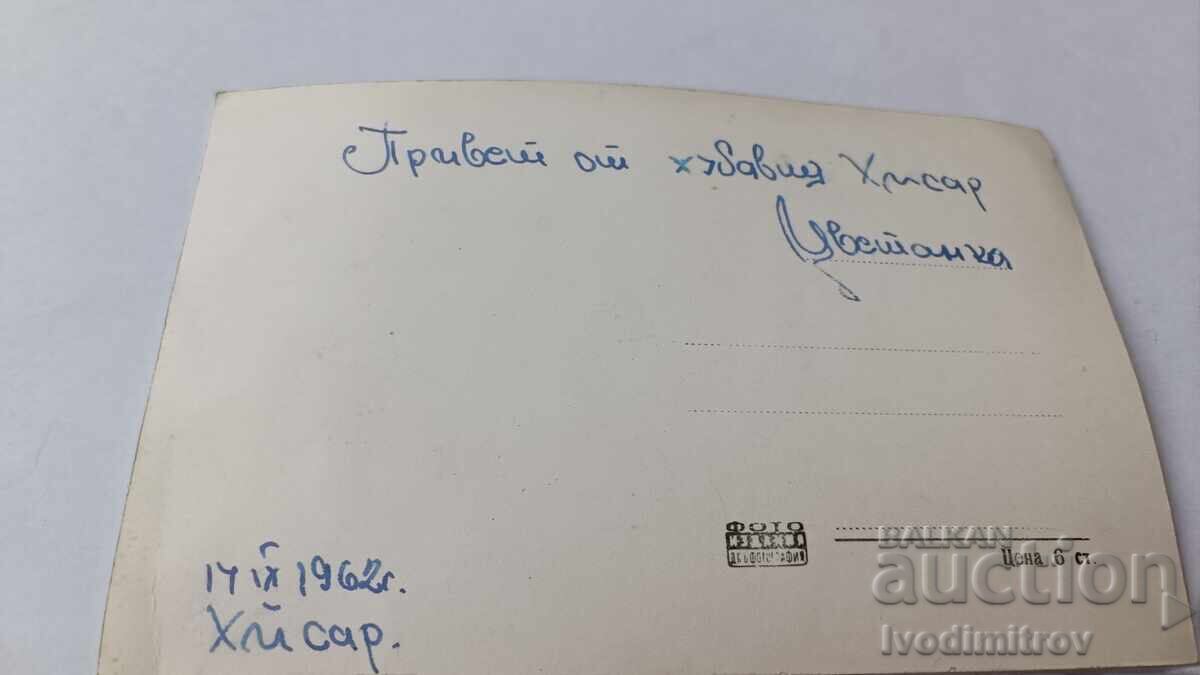 Привет от хубавия Хисар
Цветанка
ФОТО
ДКФОТОГРАФИЯ
Цена 6 ст.
14 IX 1962г.
Хисар.
BALKAN
auction
Ivodimitrov